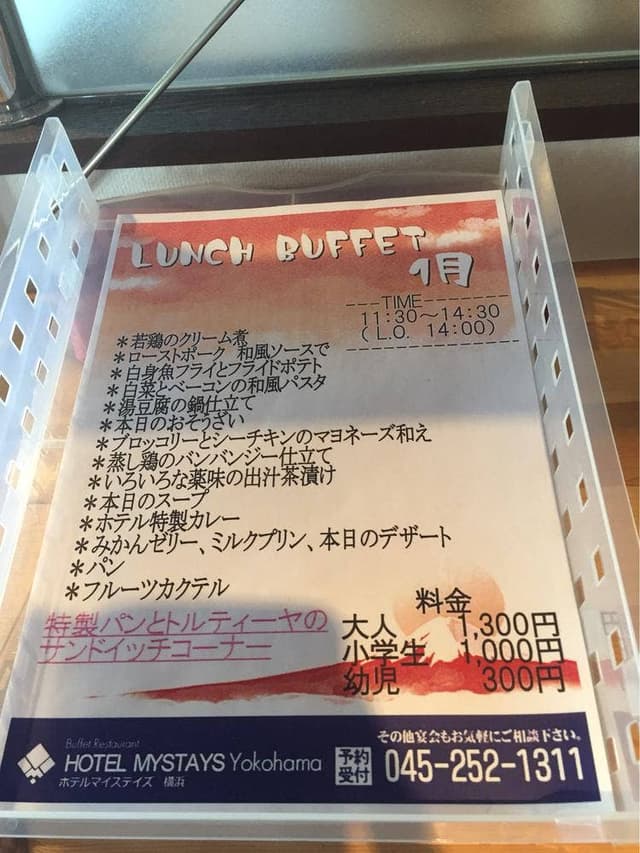 LUNCH BUFFET
1月
---TIME---------
11:30～14:30
(L.O. 14:00)
----------------
＊若鶏のクリーム煮
＊ローストポーク 和風ソースで
＊白身魚フライとフライドポテト
＊白菜とベーコンの和風パスタ
＊湯豆腐の鍋仕立て
＊本日のおそうざい
＊ブロッコリーとシーチキンのマヨネーズ和え
＊蒸し鶏のバンバンジー仕立て
＊いろいろな薬味の出汁茶漬け
＊本日のスープ
＊ホテル特製カレー
＊みかんゼリー、ミルクプリン、本日のデザート
＊パン
＊フルーツカクテル
特製パンとトルティーヤの
サンドイッチコーナー
料金
大人 1,300円
小学生 1,000円
幼児 300円
Buffet Restaurant
HOTEL MYSTAYS Yokohama
ホテルマイステイズ 横浜
その他宴会もお気軽にご相談下さい。
予約
受付
045-252-1311